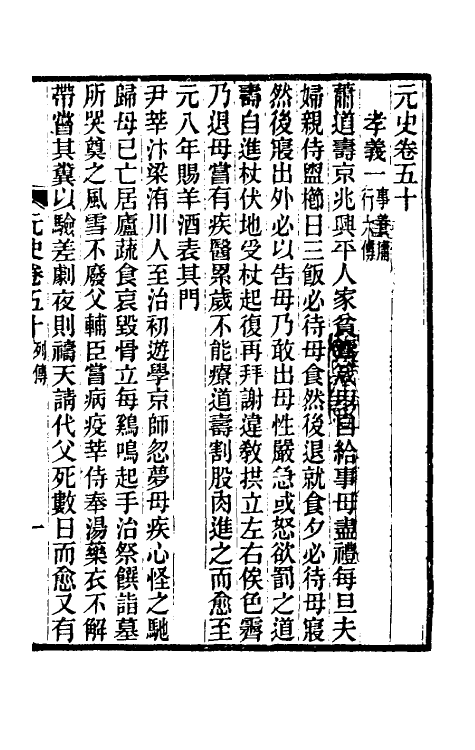 元史卷五十
孝義一
蕭道壽京兆興平人家貧自給事母盡禮每旦夫
婦親侍盥櫛日三飯必待母食然後退就食夕必待母寢
然後寢出外必以告母乃敢出母性嚴急或怒欲罰之道
壽自進杖伏地受杖起復再拜謝違教拱立左右俟色霽
乃退母嘗有疾醫累歲不能療道壽割股肉進之而愈至
元八年賜羊酒表其門
尹莘汴梁洧川人至治初遊學京師忽夢母疾心怪之馳
歸母已亡居廬蔬食哀毀骨立每鷄鳴起手治祭饌詣墓
所哭奠之風雪不廢父輔臣嘗病疫莘侍奉湯藥衣不解
帶嘗其糞以驗差劇夜則禱天請代父死數日而愈又有
元史卷五十 列傳 一